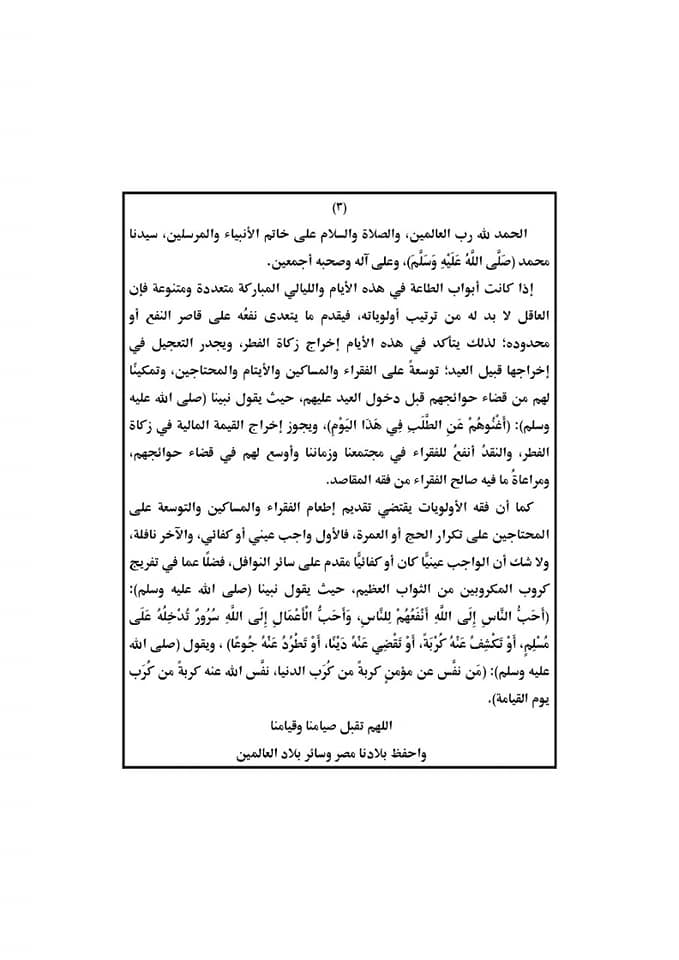 (٣)
الحمد لله رب العالمين، والصلاة والسلام على خاتم الأنبياء والمرسلين، سيدنا
محمد (صَلَّى اللَّهُ عَلَيْهِ وَسَلَّمَ)، وعلى آله وصحبه أجمعين.
إذا كانت أبواب الطاعة في هذه الأيام والليالي المباركة متعددة ومتنوعة فإن
العاقل لا بد له من ترتيب أولوياته، فيقدم ما يتعدى نفعُه على قاصر النفع أو
محدوده؛ لذلك يتأكد في هذه الأيام إخراج زكاة الفطر، ويجدر التعجيل في
إخراجها قبيل العيد؛ توسعةً على الفقراء والمساكين والأيتام والمحتاجين، وتمكينًا
لهم من قضاء حوائجهم قبل دخول العيد عليهم، حيث يقول نبينا (صلى الله عليه
وسلم): (أَغْنُوهُمْ عَنِ الطَّلَبِ فِي هَذَا اليَوْمِ)، ويجوز إخراج القيمة المالية في زكاة
الفطر، والنقدُ أنفعُ للفقراء في مجتمعنا وزماننا وأوسع لهم في قضاء حوائجهم،
ومراعاةُ ما فيه صالح الفقراء من فقه المقاصد.
كما أن فقه الأولويات يقتضي تقديم إطعام الفقراء والمساكين والتوسعة على
المحتاجين على تكرار الحج أو العمرة، فالأول واجب عيني أو كفائي، والآخر نافلة،
ولا شك أن الواجب عينيًّا كان أو كفائيًّا مقدم على سائر النوافل، فضلًا عما في تفريج
كروب المكروبين من الثواب العظيم، حيث يقول نبينا (صلى الله عليه وسلم):
(أَحَبُّ النَّاسِ إِلَى اللَّهِ أَنْفَعُهُمْ لِلنَّاسِ، وَأَحَبُّ الْأَعْمَالِ إِلَى اللَّهِ سُرُورٌ تُدْخِلُهُ عَلَى
مُسْلِمٍ، أَوْ تَكْشِفُ عَنْهُ كُرْبَةً، أَوْ تَقْضِي عَنْهُ دَيْنًا، أَوْ تَطْرُدُ عَنْهُ جُوعًا) ، ويقول (صلى الله
عليه وسلم): (مَن نفَّس عن مؤمنٍ كربةً من كُرَب الدنيا، نفَّس الله عنه كربةً من كُرَب
يوم القيامة).
اللهم تقبل صيامنا وقيامنا
واحفظ بلادنا مصر وسائر بلاد العالمين